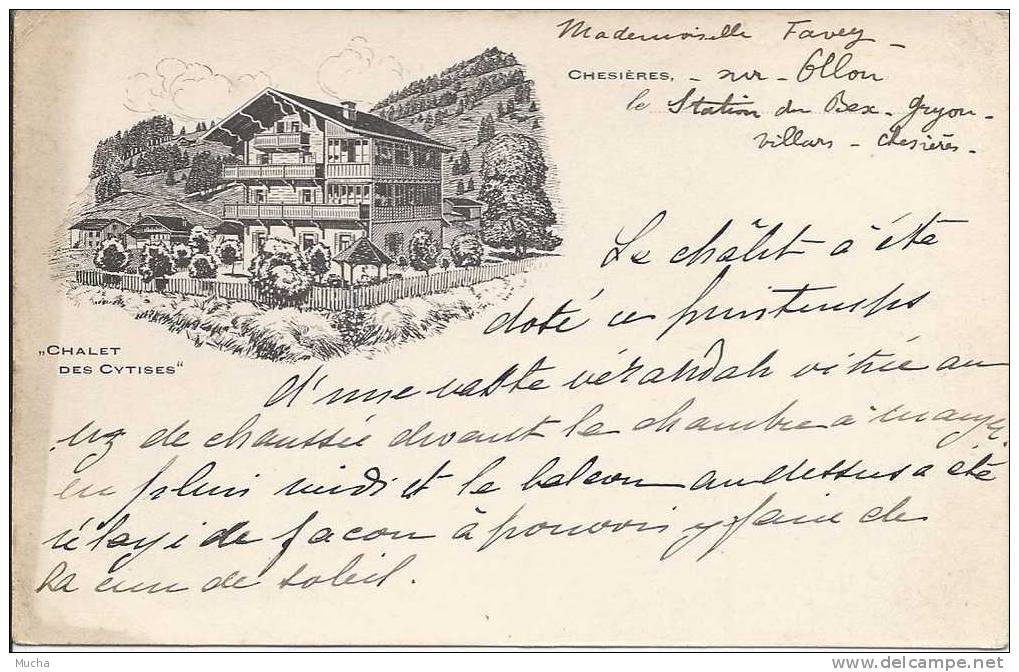 Mademoiselle Favey -
CHESIÈRES, - sur - Ollon
la Station du Bex - Gryon -
Villars - Chesières -
„CHALET
DES CYTISES“
Le châlet à été
doté ce printemps
d'une vaste vérandah vitrée au
rez de chaussée devant la chambre à manger
en plein midi et le balcon au dessus a été
élargi de façon à pouvoir y faire de
la cure de soleil.
Mucha
delcampe.net